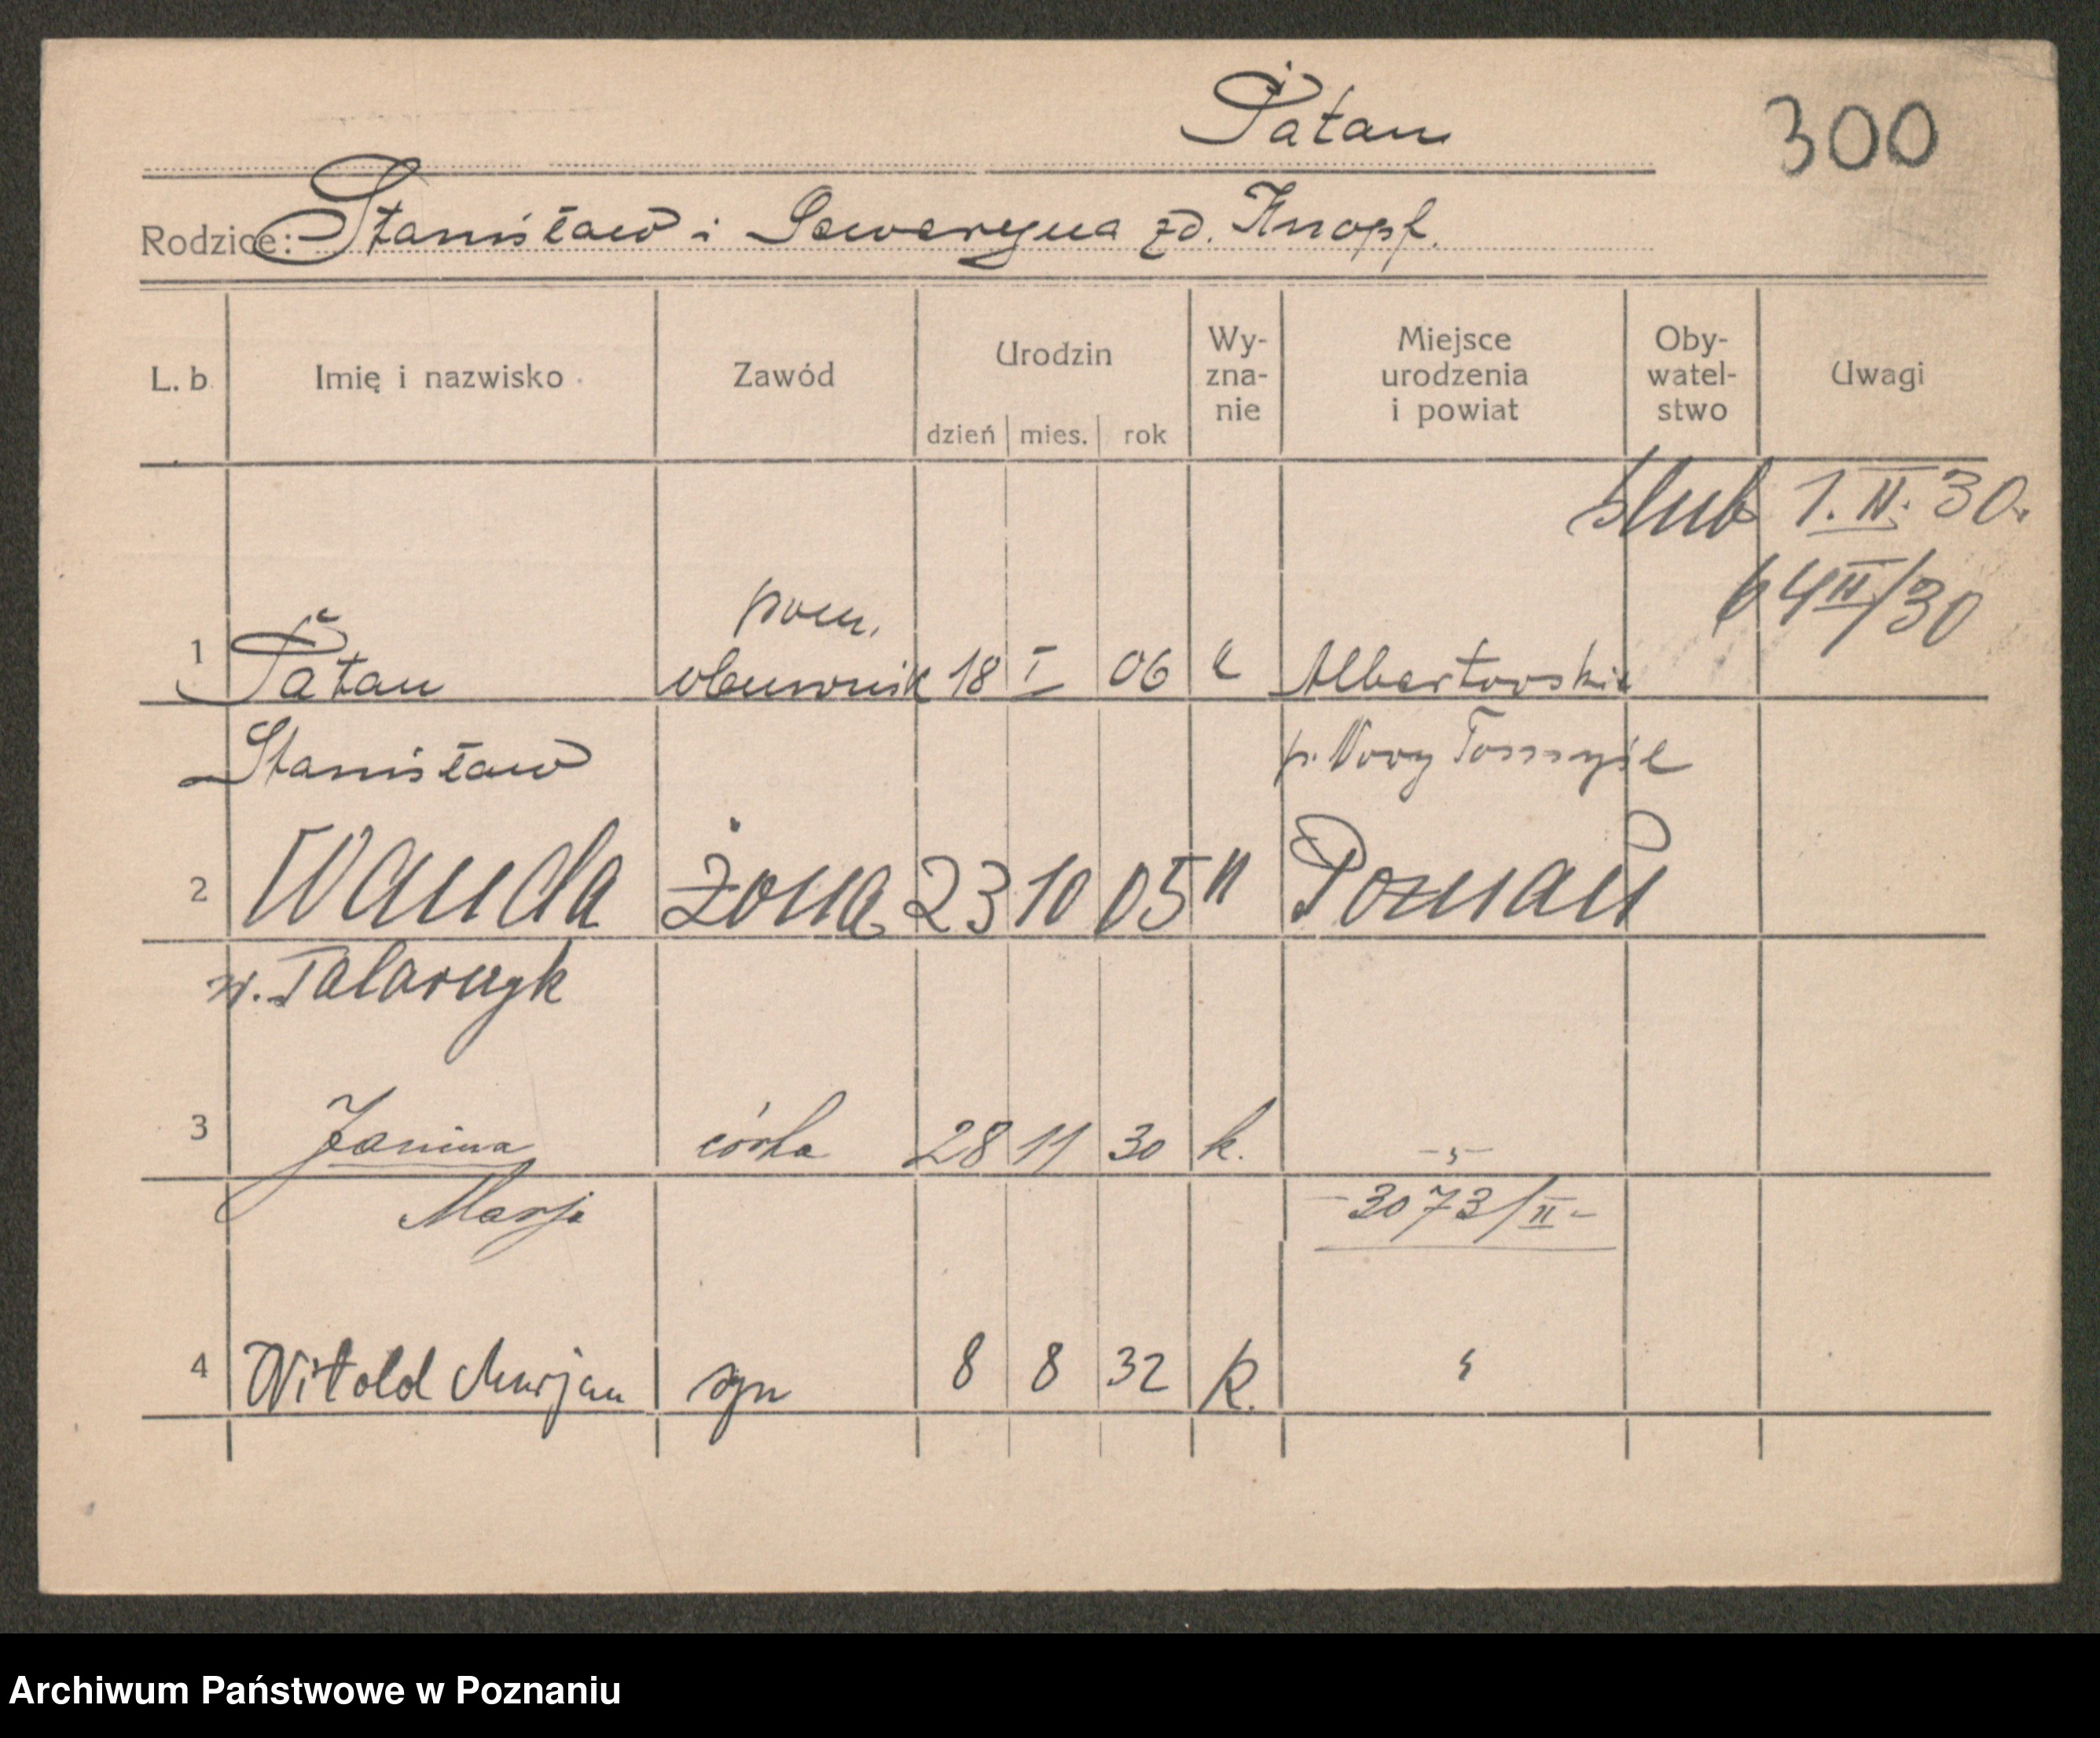 Patan
300
Rodzice: Stanisław i Seweryna zd. Knopf.
L. b. Imię i nazwisko Zawód Urodzin Wy- Miejsce Oby- Uwagi
zna- urodzenia watel-
nie i powiat stwo
dzień mies. rok
ślub 1. II. 30.
64 II/30
pom.
1 Patan obuwnik 18 I 06 k Albertowskie
Stanisław p. Nowy Tomyśl
2 Wanda żona 23 10 05 " Poznań
z. Talarczyk
3 Janina córka 28 11 30 k. -"-
Marja -3073/II-
4 Witold Marjan syn 8 8 32 k. "
Archiwum Państwowe w Poznaniu